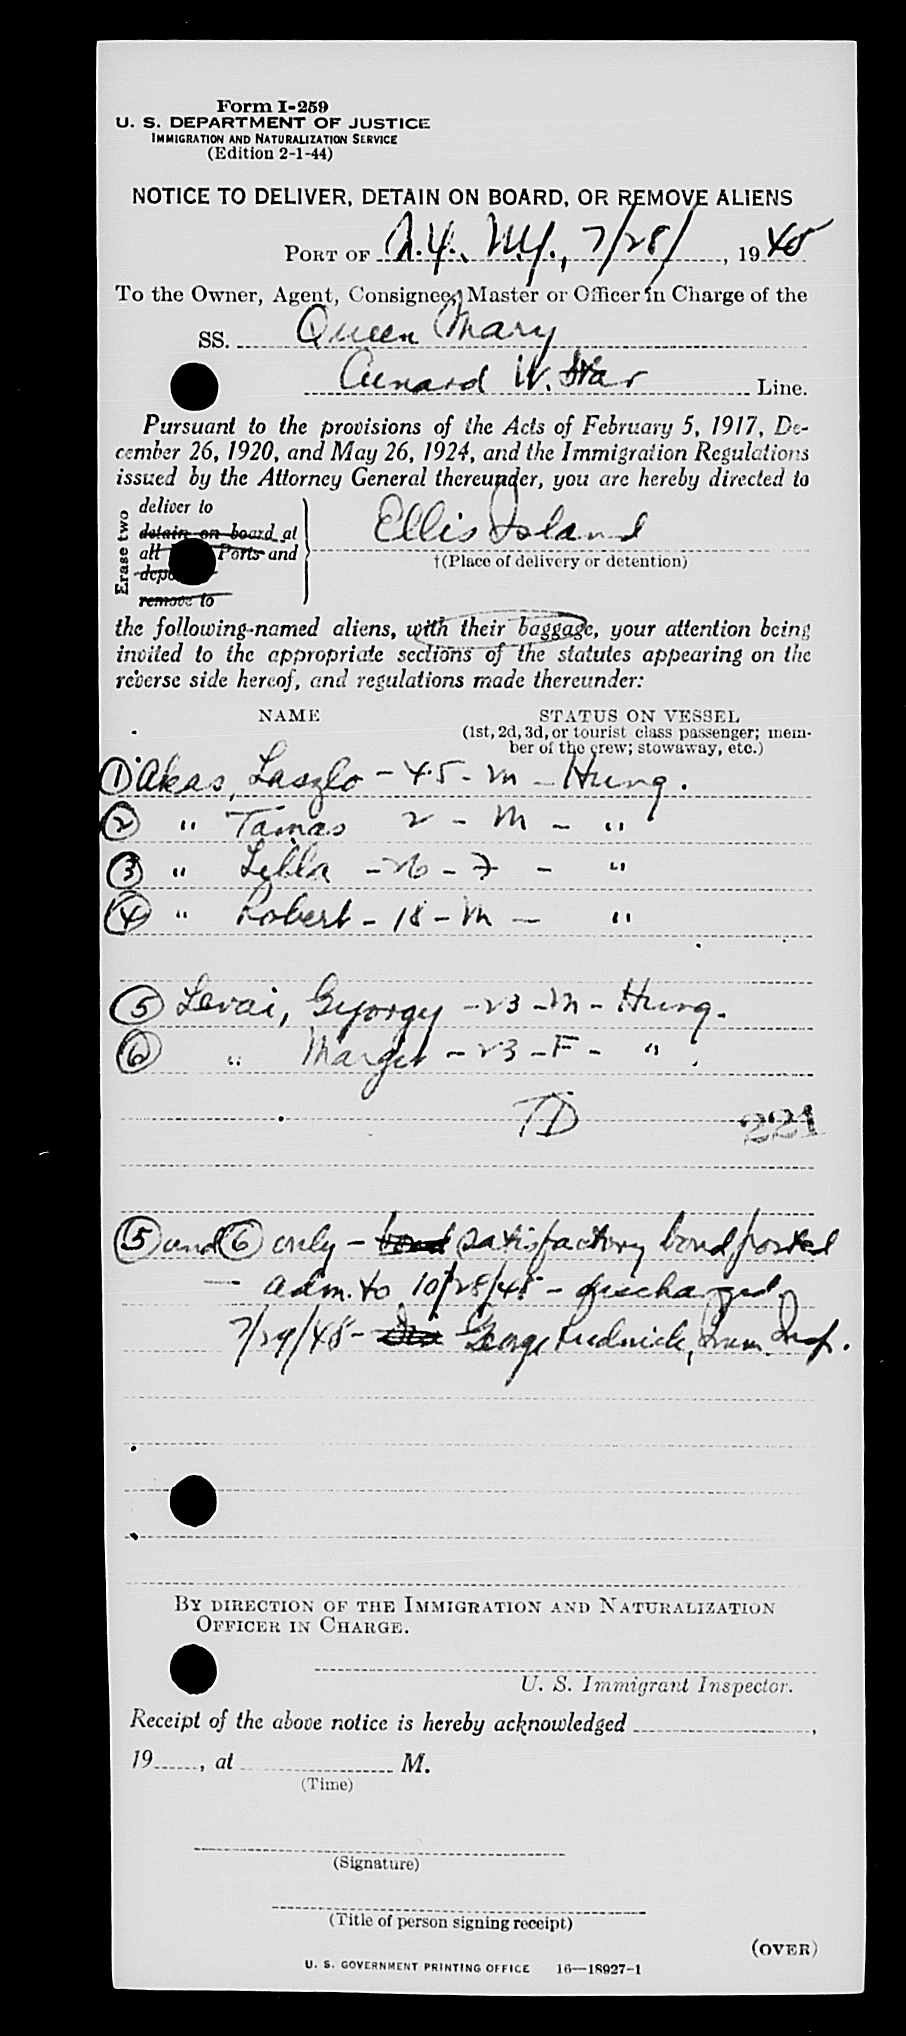 Form I-259
U. S. DEPARTMENT OF JUSTICE
IMMIGRATION AND NATURALIZATION SERVICE
(Edition 2-1-44)
NOTICE TO DELIVER, DETAIN ON BOARD, OR REMOVE ALIENS
PORT OF N.Y., N.Y., 7/28/, 1948
To the Owner, Agent, Consignee, Master or Officer in Charge of the
SS. Queen Mary
Cunard W. Star Line.
Pursuant to the provisions of the Acts of February 5, 1917, De-
cember 26, 1920, and May 26, 1924, and the Immigration Regulations
issued by the Attorney General thereunder, you are hereby directed to
Erase two
deliver to
detain on board at
all Ports and
remove to
Ellis Island
†(Place of delivery or detention)
the following-named aliens, with their baggage, your attention being
invited to the appropriate sections of the statutes appearing on the
reverse side hereof, and regulations made thereunder:
NAME STATUS ON VESSEL
(1st, 2d, 3d, or tourist class passenger; mem-
ber of the crew; stowaway, etc.)
① Akas, Laszlo - 45 - M - Hung.
② " Tamas 2 - M - "
③ " Lilla - 26 - F - "
④ " Robert - 18 - M - "
⑤ Levai, Gyorgy - 23 - M - Hung.
⑥ " Margit - 23 - F - "
TD 221
⑤ and ⑥ only - bond satisfactory bond posted
- adm. to 10/28/48 - discharged
7/29/48 - George Rudnick, Imm. Insp.
BY DIRECTION OF THE IMMIGRATION AND NATURALIZATION
OFFICER IN CHARGE.
U. S. Immigrant Inspector.
Receipt of the above notice is hereby acknowledged ,
19 , at M.
(Time)
(Signature)
(Title of person signing receipt)
(OVER)
U. S. GOVERNMENT PRINTING OFFICE 16—18927-1